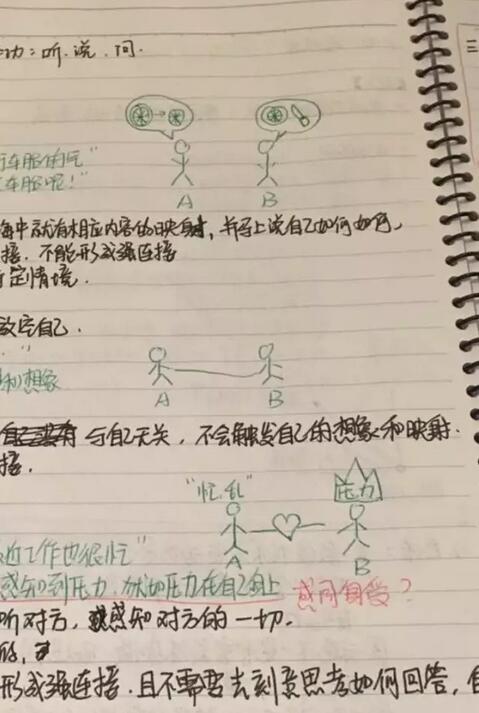 功：听.说.问.
三
车胎的气"
车胎呢！"
A B
海中就有相应内容的映射，并马上说自己如何如何，
接.不能形成强连接
定情境.
放空自己.
"
和想象
A B
与自己无关，不会触发自己的想象和映射.
接.
"忙乱" 压力
A B
近工作也很忙"
感知到压力，犹如压力在自己身上 感同身受？
听对方，感知对方的一切.
形成强连接.且不需要去刻意思考如何回答，自